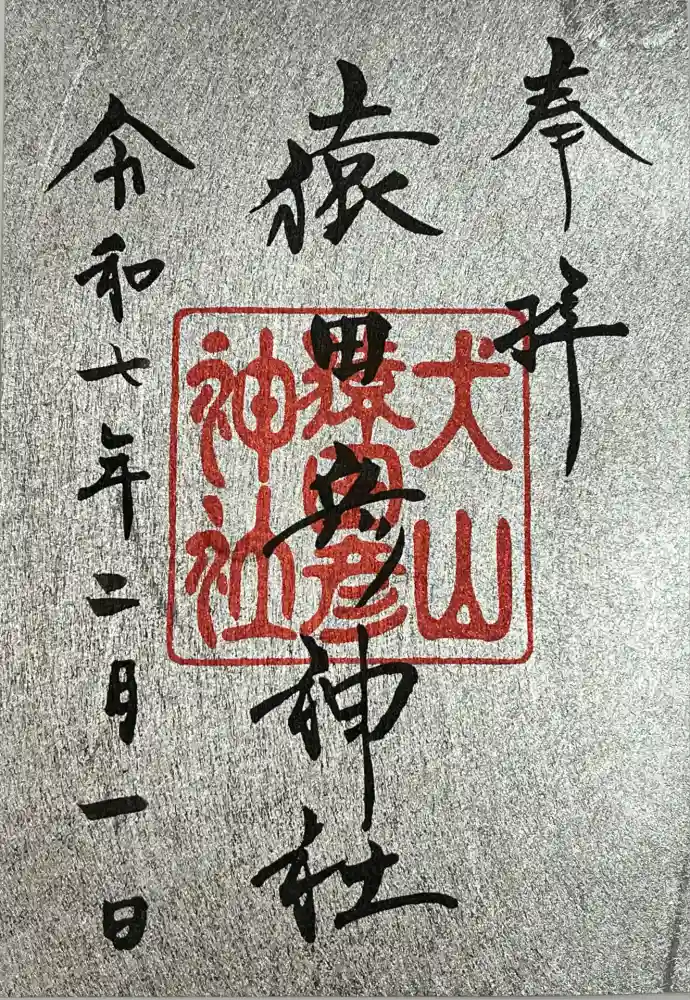 奉拝
犬山
猿田彦
神社
猿田彦神社
令和七年二月一日